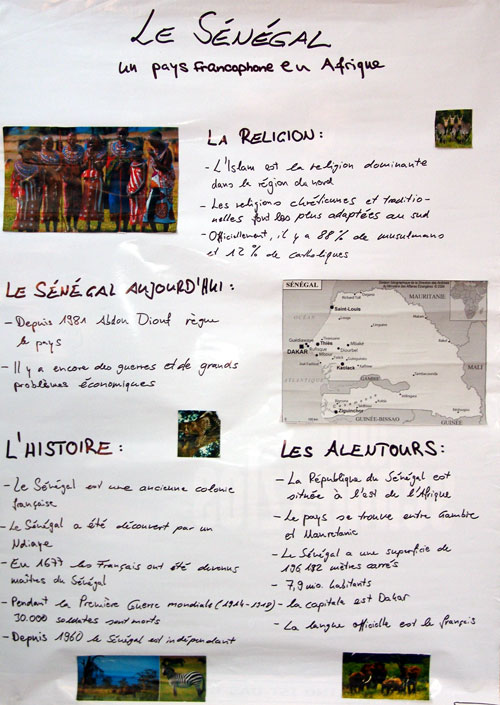 LE SÉNÉGAL
un pays francophone en Afrique
LA RELIGION:
- L'Islam est la religion dominante
dans la région du nord
- Les religions chrétiennes et traditio-
nelles sont les plus adaptées au sud
- Officiellement, il y a 88 % de musulmans
et 12 % de catholiques
LE SÉNÉGAL AUJOURD'HUI:
- Depuis 1981 Abdou Diouf règne
le pays
- Il y a encore des guerres et de grands
problèmes économiques
SÉNÉGAL
MAURITANIE
Saint-Louis
DAKAR
Thiès
Kaolack
MALI
GAMBIE
Ziguinchor
GUINÉE-BISSAU
GUINÉE
L'HISTOIRE:
- Le Sénégal est une ancienne colonie
française
- Le Sénégal a été découvert par un
Ndiaye
- En 1677 les Français ont été devenus
maîtres du Sénégal
- Pendant la Première Guerre mondiale (1914-1918)
30.000 soldates sont morts
- Depuis 1960 le Sénégal est indépendant
LES ALENTOURS:
- La République du Sénégal est
située à l'est de l'Afrique
- Le pays se trouve entre Gambie
et Mauretanie
- Le Sénégal a une superficie de
196 182 mètres carrés
- 7,9 mio. habitants
- la capitale est Dakar
- La langue officielle est le français